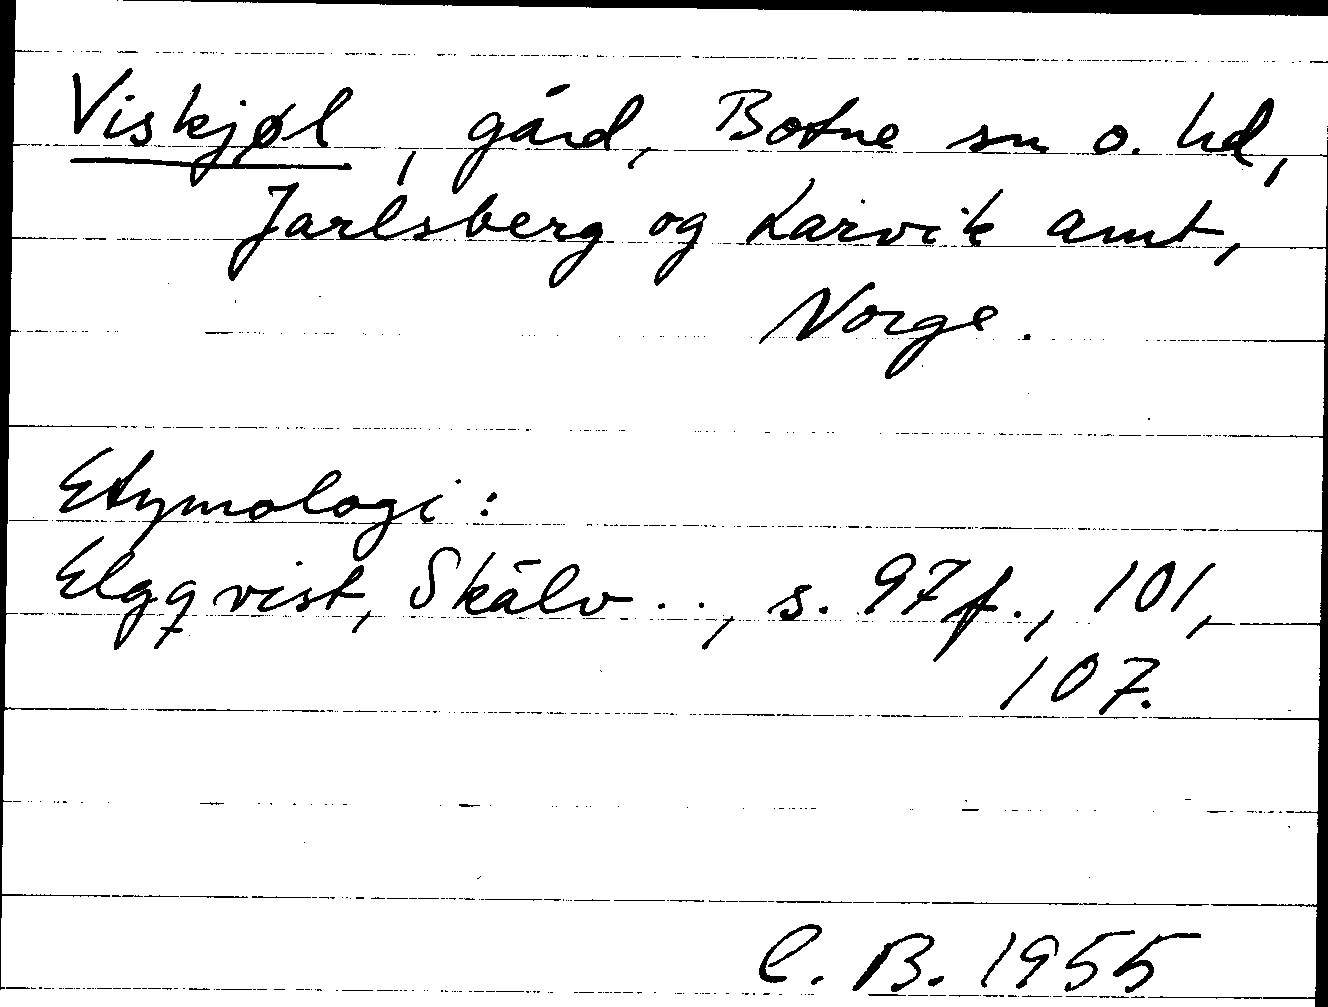 Viskjøl, gård, Botne sn o. hd,
Jarlsberg og Larvik amt,
Norge.
Etymologi:
Elgqvist, Skälv.., s. 97 f., 101,
107.
C. B. 1955